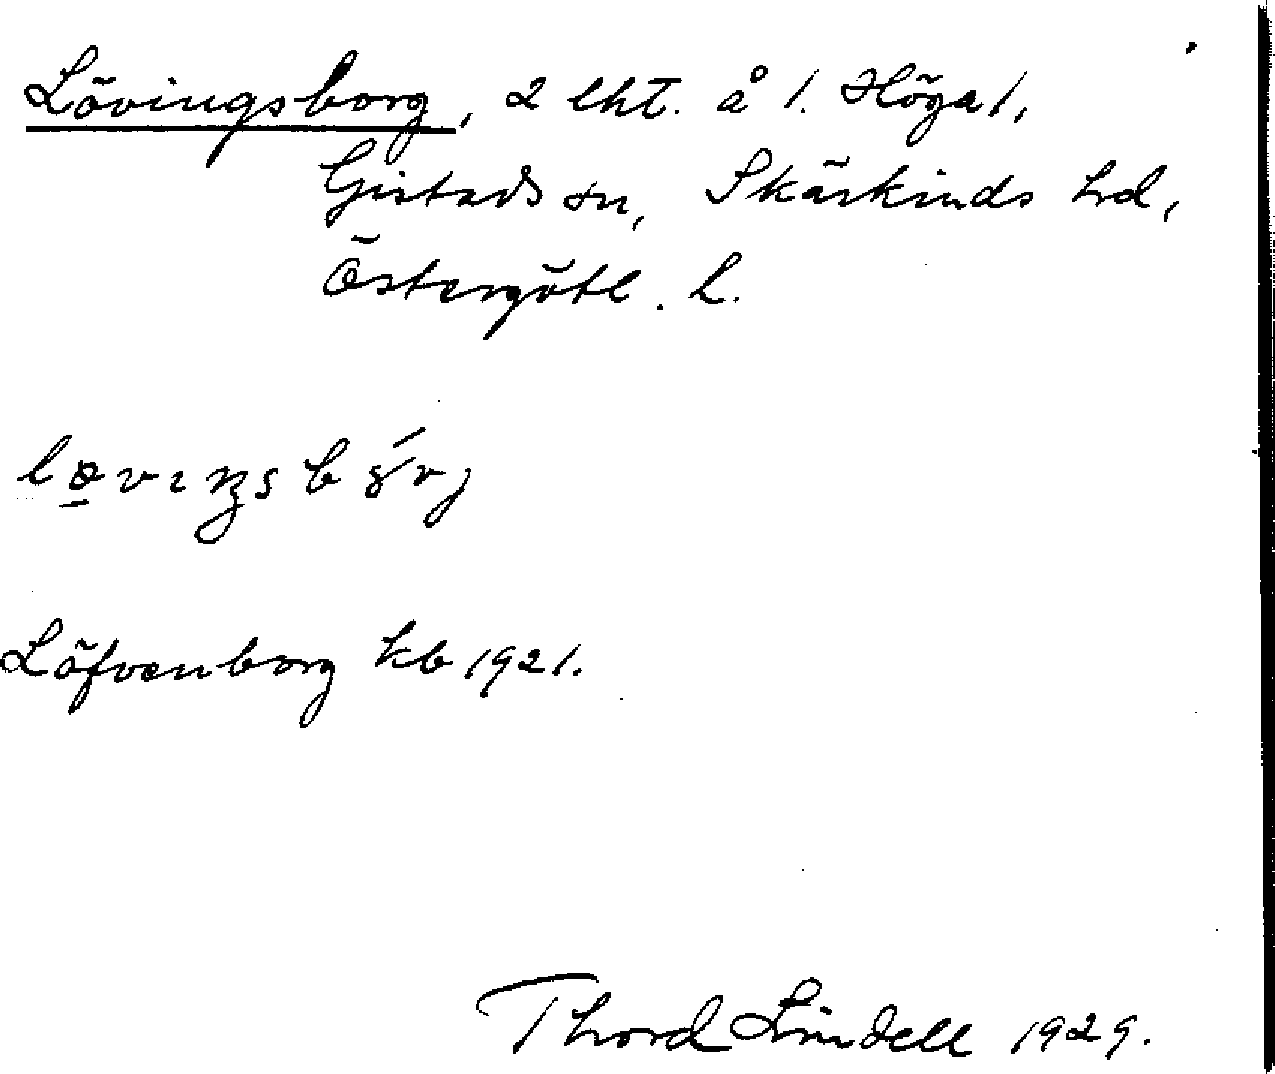 Lövingsborg, 2 lht. å 1. Höga 1,
Gistads sn, Skärkinds hd,
Östergötl. L.
Löfvenborg kb 1921.
Thord Lindell 1929.